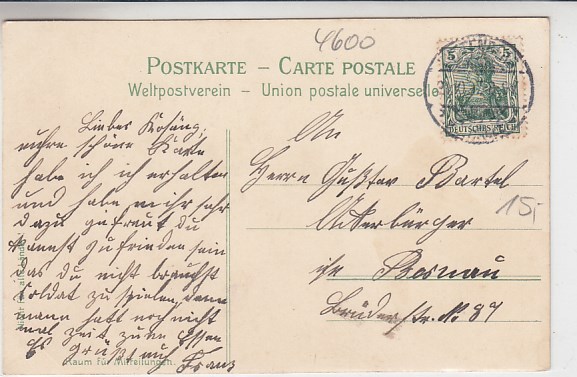 4600
POSTKARTE – CARTE POSTALE
Weltpostverein – Union postale universelle
5 5
DEUTSCHES REICH
Liebes
euhre schöne Karte
habe ich ich erhalten
und habe m ihr sehr
dazu gefreut du
kannst zufrieden sein
das du nicht brauchst
Soldat zu spielen, denn
mann hatt noch nicht
mal zeit zum Essen
Es Grüßt euch Franz
Raum für Mitteilungen.
An
Herrn Gustav Bartel
Ackerbürger
15,-
Besnau
Brüderstr. No 87